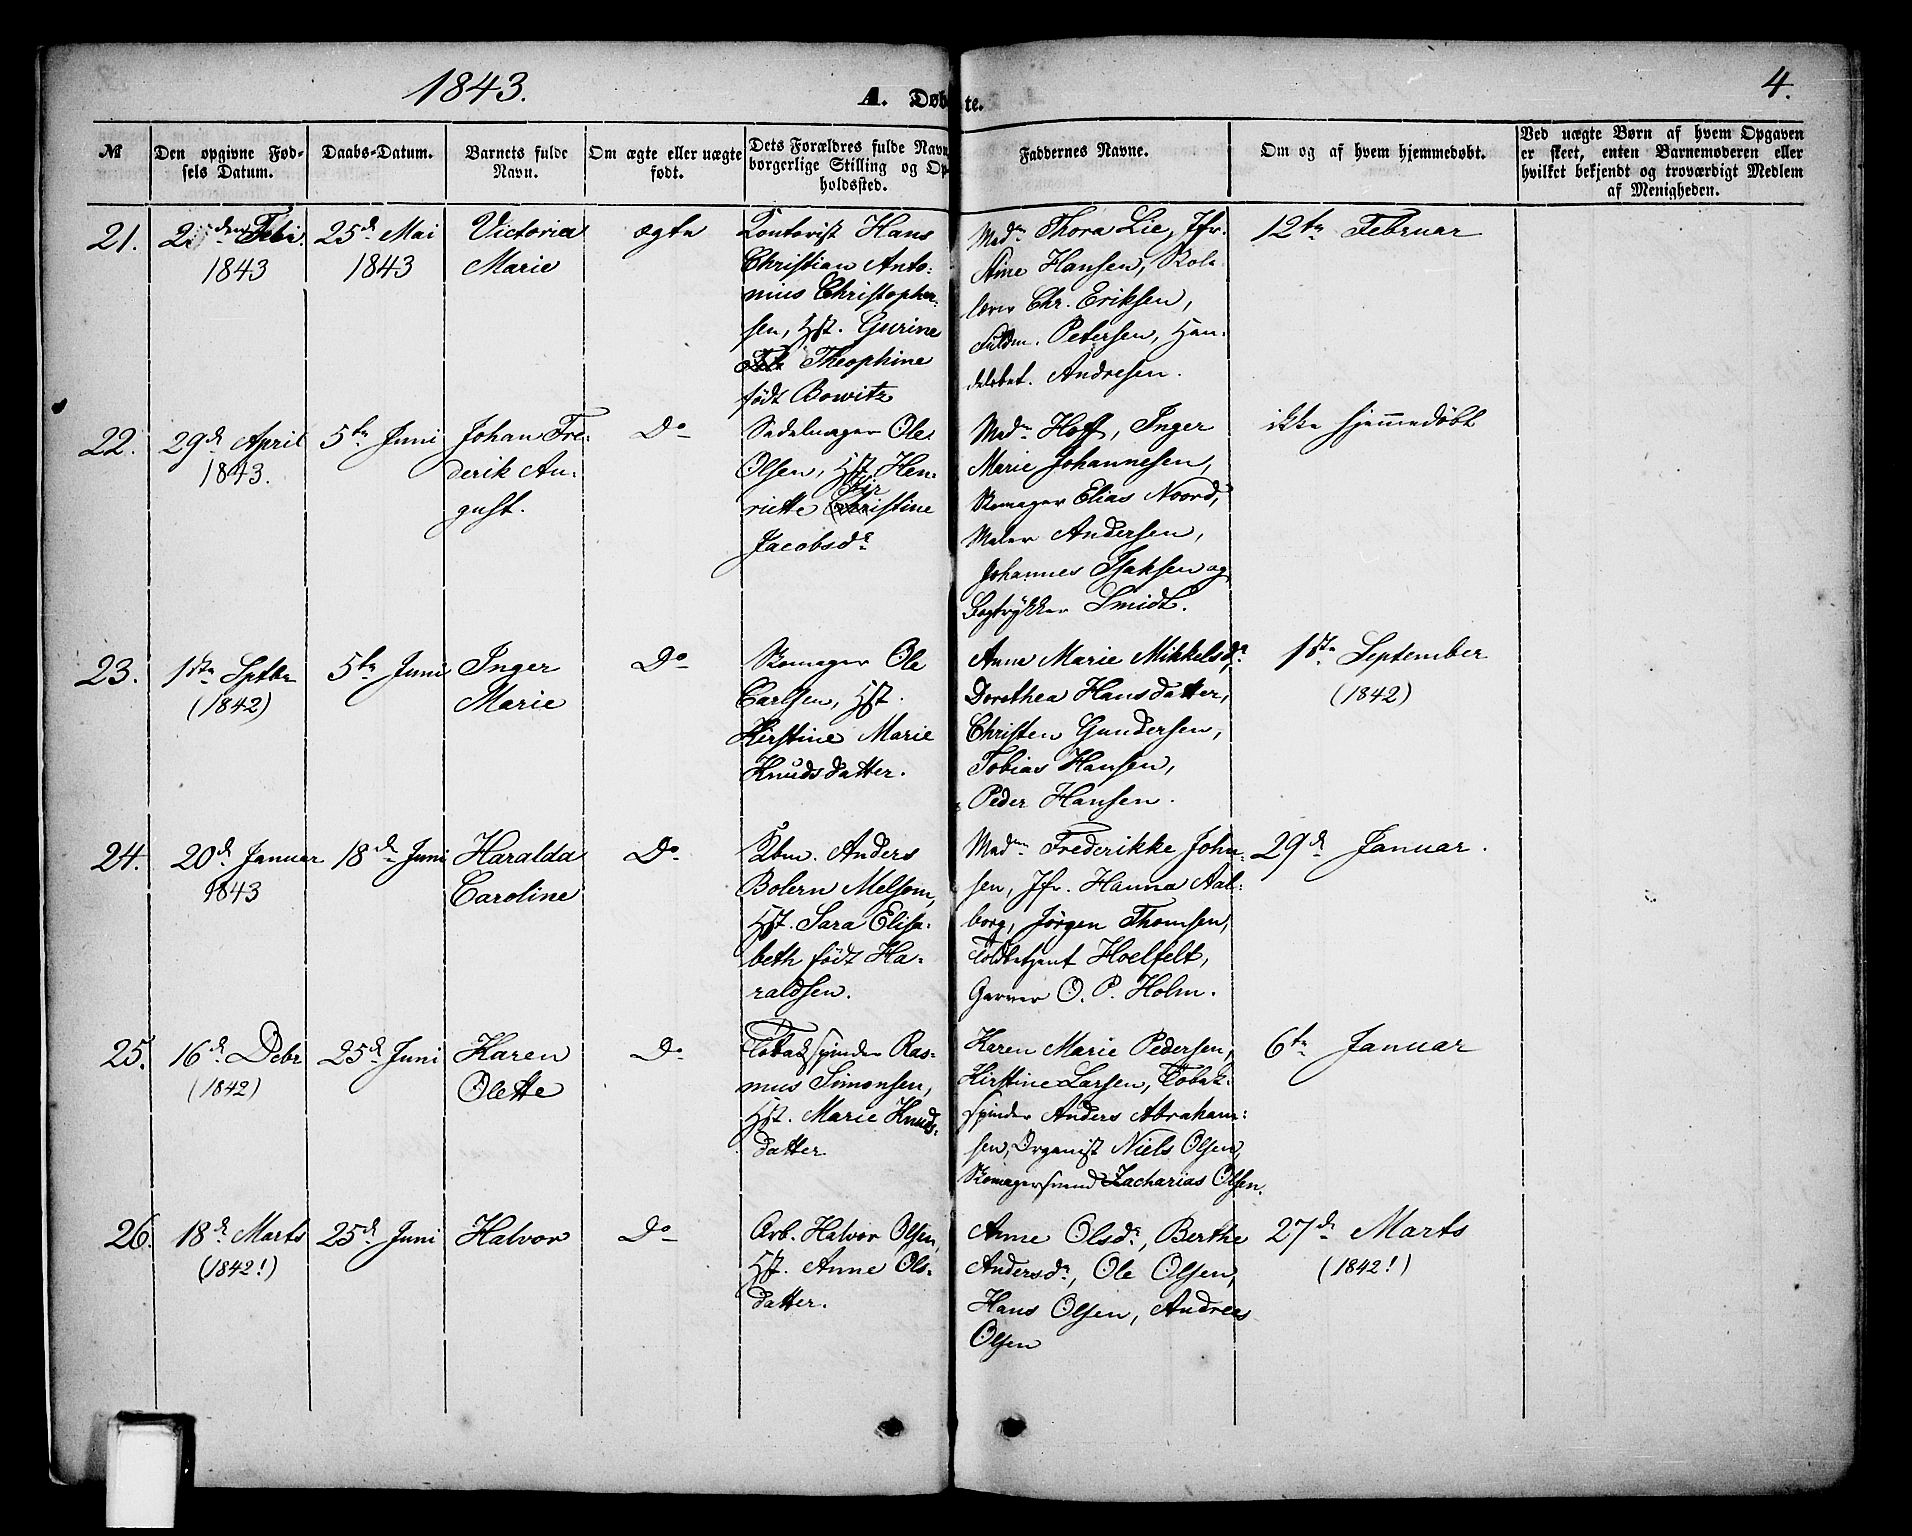 1843.
A. Døbte.
4.
№
Den opgivne Fød-
sels Datum.
Daabs-Datum.
Barnets fulde
Navn.
Om ægte eller uægte
født.
Dets Forældres fulde Navn
borgerlige Stilling og Op-
holdssted.
Faddernes Navne.
Om og af hvem hjemmedøbt.
Ved uægte Børn af hvem Opgaven
er skeet, enten Barnemoderen eller
hvilket bekjendt og troværdigt Medlem
af Menigheden.
21.
Febr
1843
25d Mai
1843
Victoria
Marie
ægte
Contorist Hans
Christian Anto-
nius Christopher-
sen, Hst. Gurine
Theophine
født Bowitz
Madm Thora Lie, Jfr.
Stine Hansen, Skole-
lærer Chr. Eriksen,
Fuldm. Petersen, Han-
delsbet. Andresen.
12te Februar
22.
29d April
1843.
5te Juni
Johan Fre-
derik Au-
gust.
Do
Sadelmager Ole
Olsen, Hst. Hen-
riette Kirstine
Jacobsdr
Madm Hoff, Inger
Marie Johannesen,
Skomager Elias Noord,
Maler Andersen,
Johannes Isaksen og
Bogtrykker Smidt.
ikke hjemmedøbt
23.
1ste Sptbr
(1842)
5te Juni
Inger
Marie
Do
Skomager Ole
Carlsen, Hst.
Kirstine Marie
Knudsdatter.
Anna Marie Mikkelsdr
Dorethea Hansdatter,
Christen Gundersen,
Tobias Hansen,
Peder Hansen.
1ste September
(1842)
24.
20d Januar
1843
18de Juni
Haralda
Caroline
Do
Kbm. Anders
Bolern Melsom,
Hst. Sara Elisa-
beth født Ha-
raldsen.
Madm Frederikke John-
sen, Jfr. Hanna Aal-
borg, Jørgen Thomsen,
Toldbetjent Hoelfelt,
Garver O. P. Holm.
29d Januar.
25.
16d Debr
(1842)
25d Juni
Karen
Olette
Do
Tobakspinder Ras-
mus Simonsen,
Hst. Marie Knuds-
datter
Karen Marie Pedersen,
Kirstine Larsen, Tobak-
spinder Anders Abraham-
sen, Organist Niels Olsen,
Skomagersvend Zacharias Olsen.
6te Januar
26.
18d Marts
(1842!)
25d Juni
Halvor
Do
Arb. Halvor Olsen,
Hst. Anne Ols-
datter.
Anne Olsdr, Berthe
Andersdr, Ole Olsen,
Hans Olsen, Andreas
Olsen
27de Marts
(1842!)